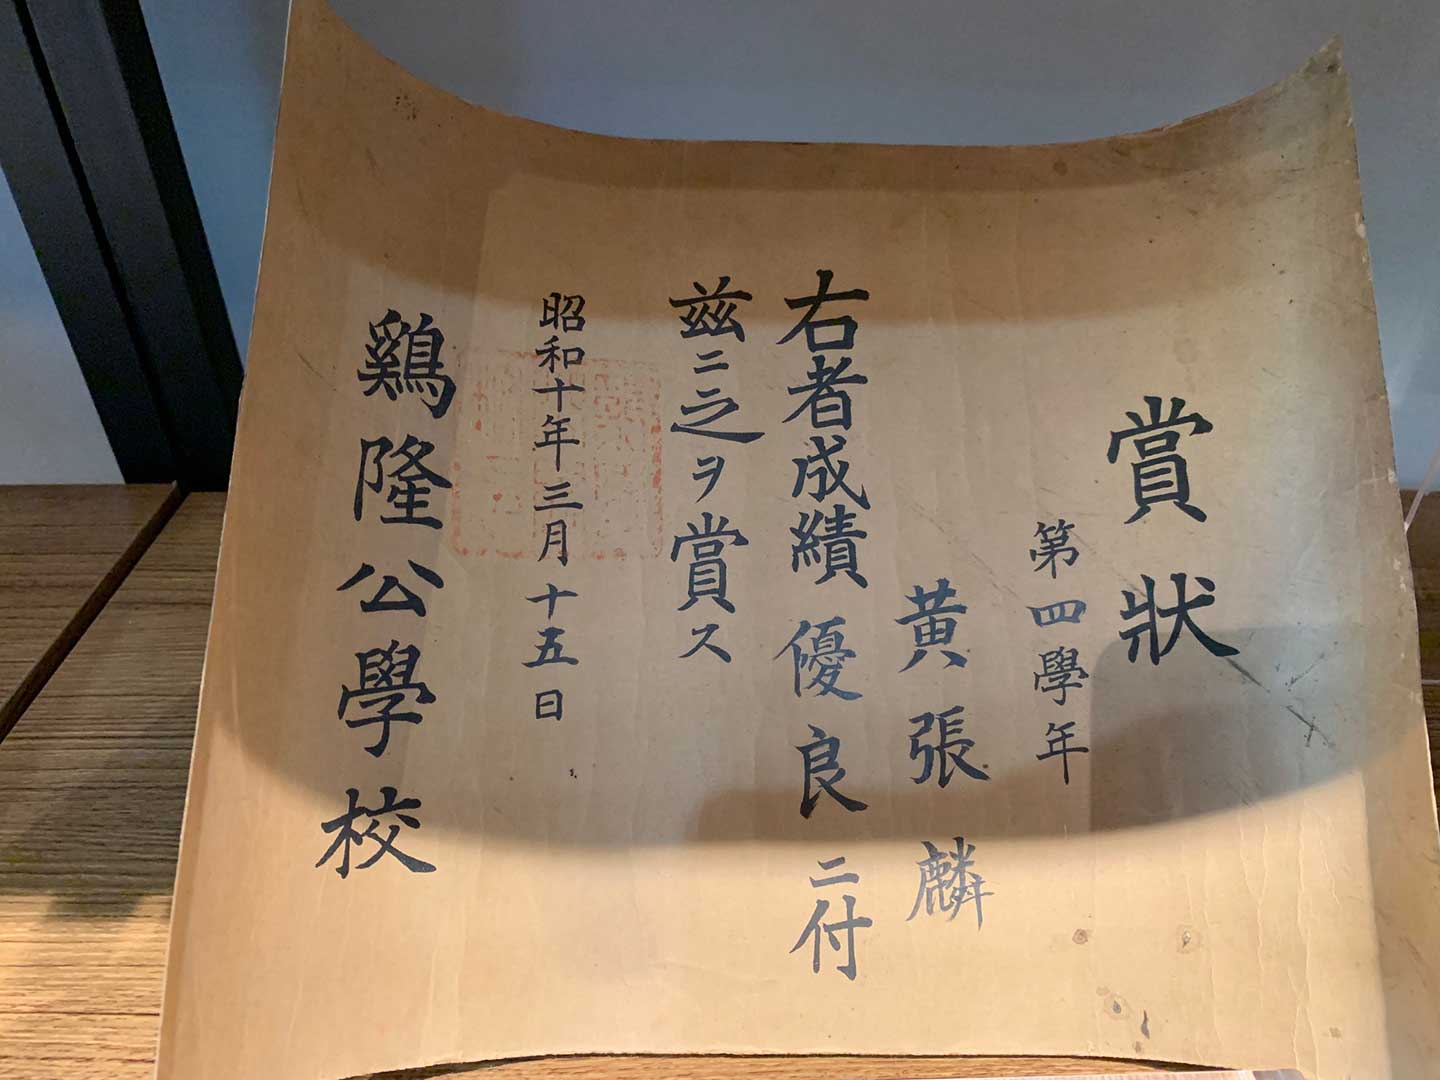 賞狀
第四學年
黃張麟
右者成績優良ニ付
茲ニ之ヲ賞ス
昭和十年三月十五日
鷄隆公學校